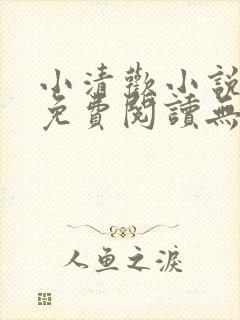 小清歡小說
免費閱讀無
人鱼之淚